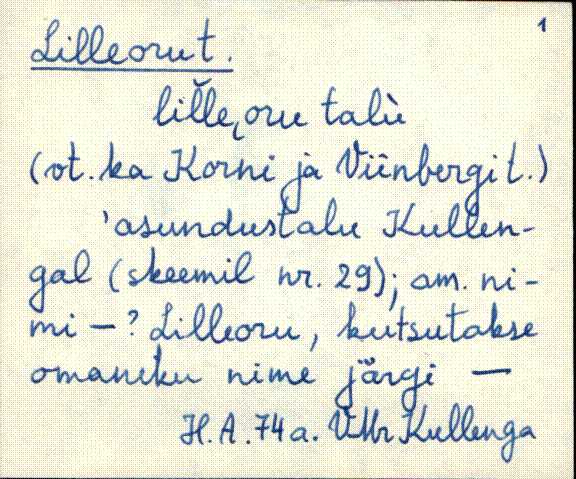 1
Lilleoru t.
lil̆le͕oru talù
(vt. ka Korni ja Viinbergi t.)
'asundustalu Kullen-
gal (skeemil nr. 29); am. ni-
mi — ? Lilleoru, kutsutakse
omaniku nime järgi —
H. A. 74 a. VMr Kullenga